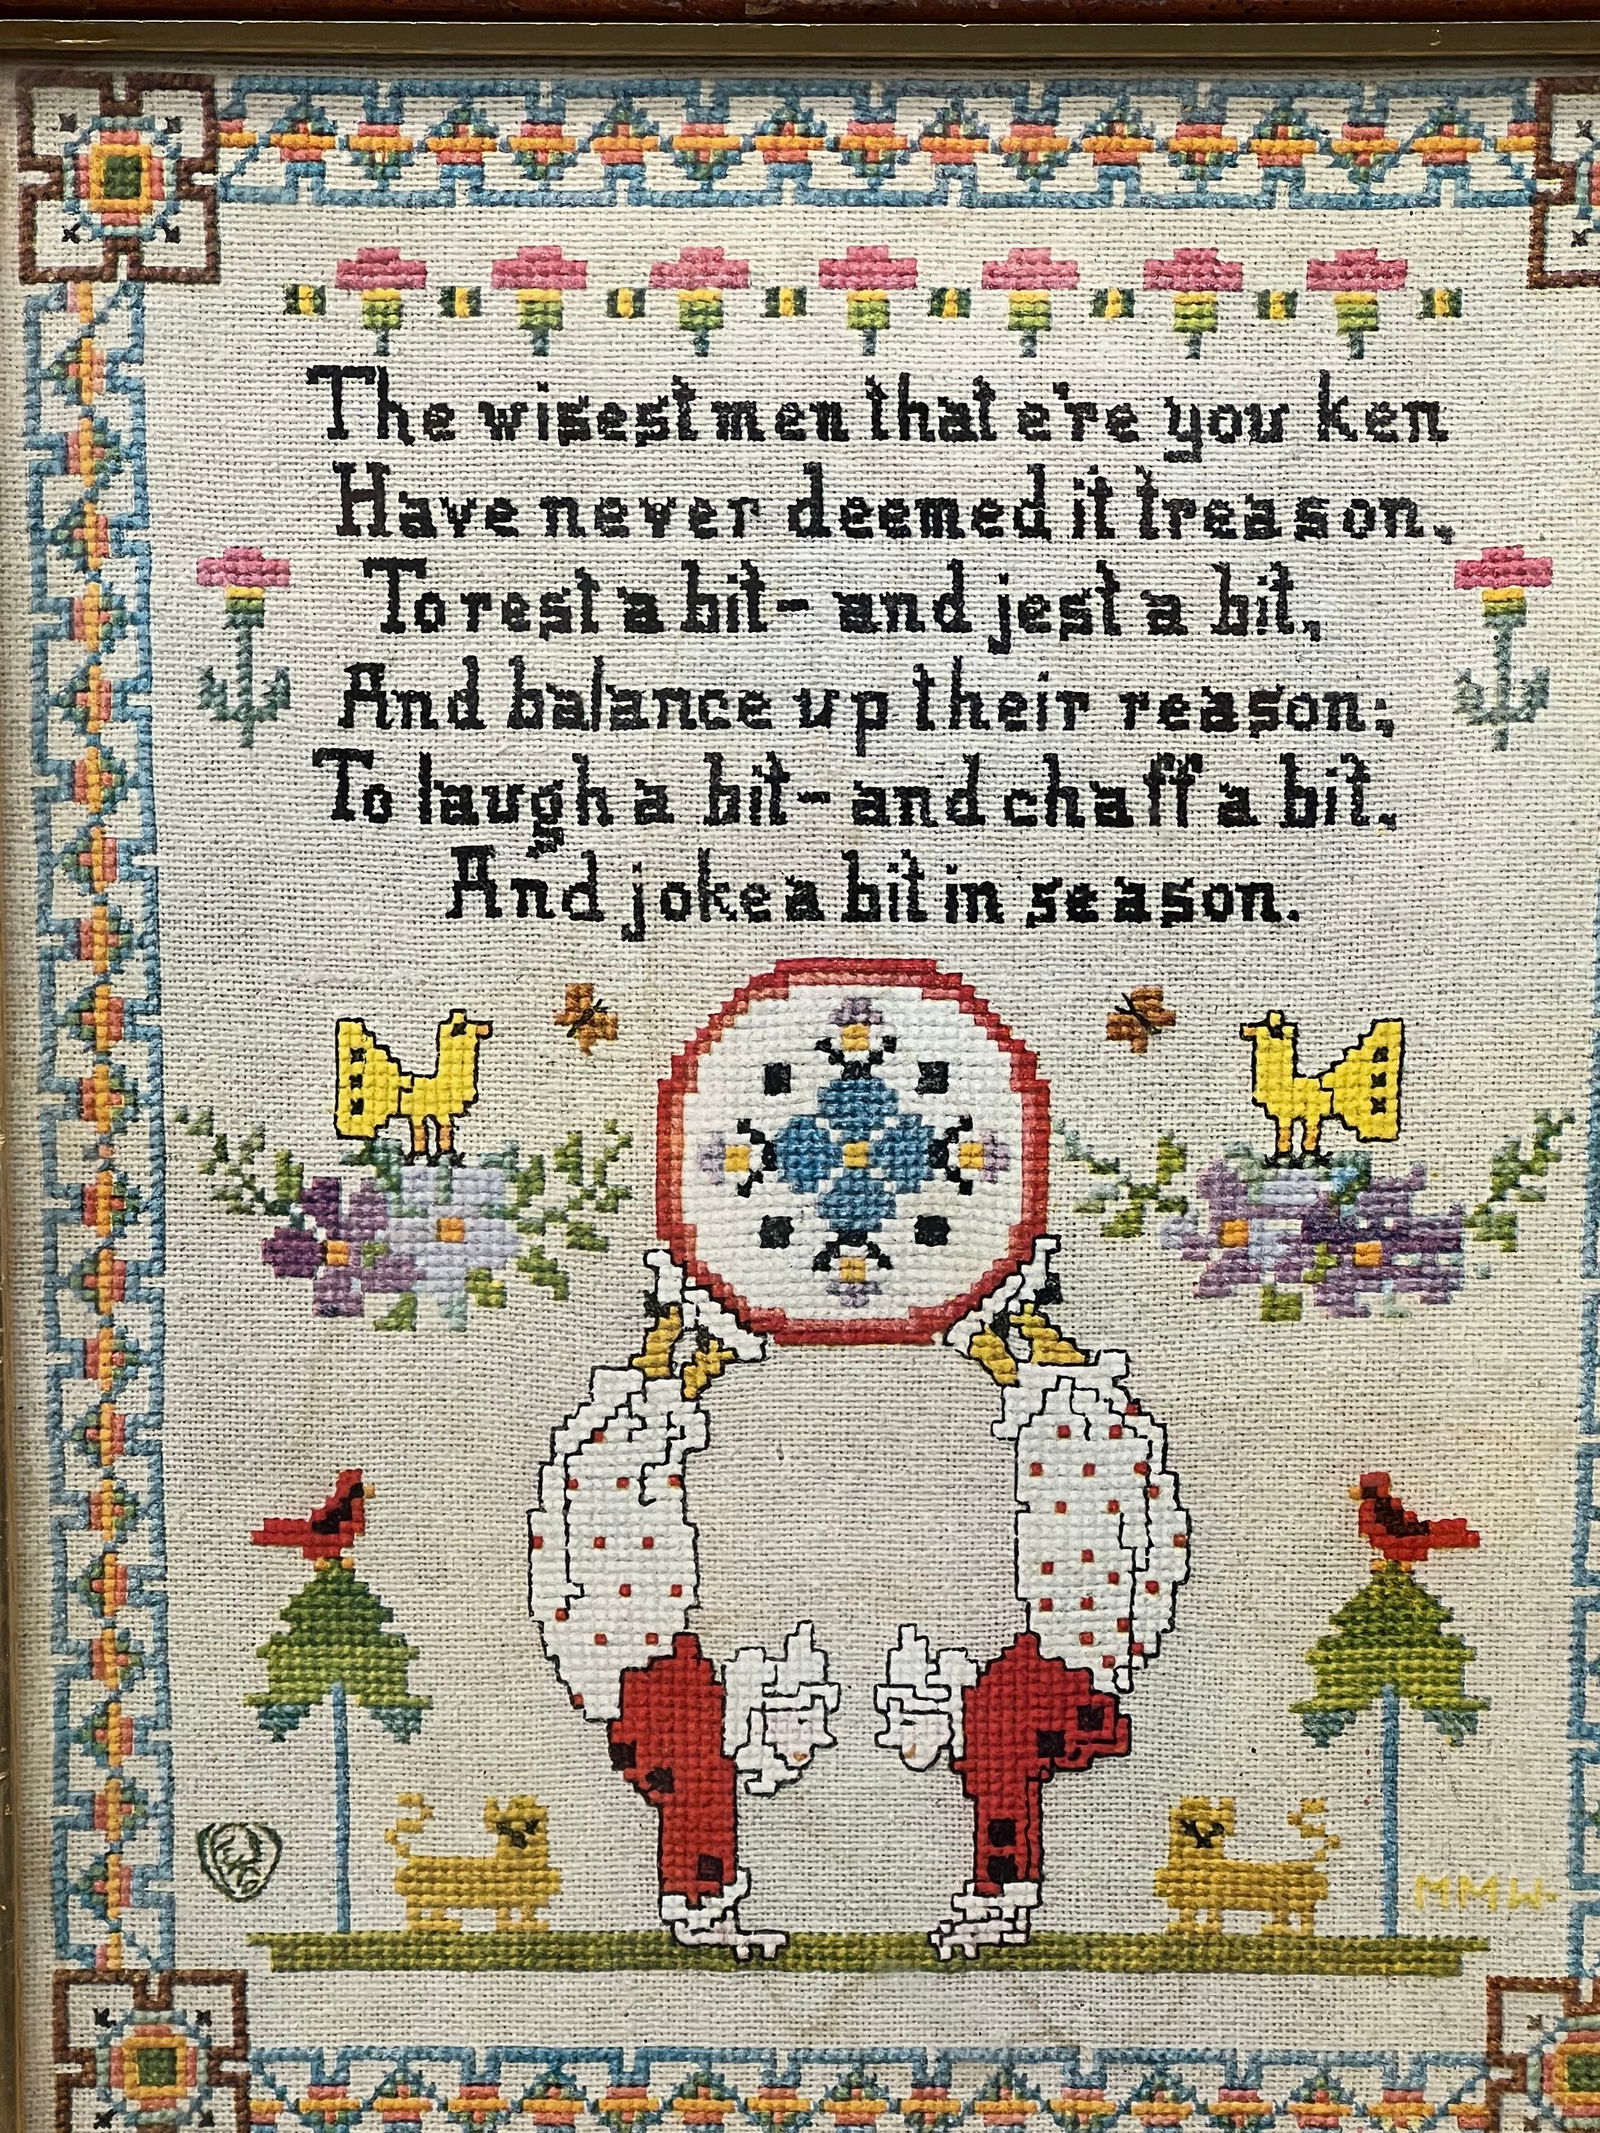 The wisest men that e're you ken
Have never deemed it treason,
To rest a bit- and jest a bit,
And balance up their reason;
To laugh a bit- and chaff a bit,
And joke a bit in season.
MMW